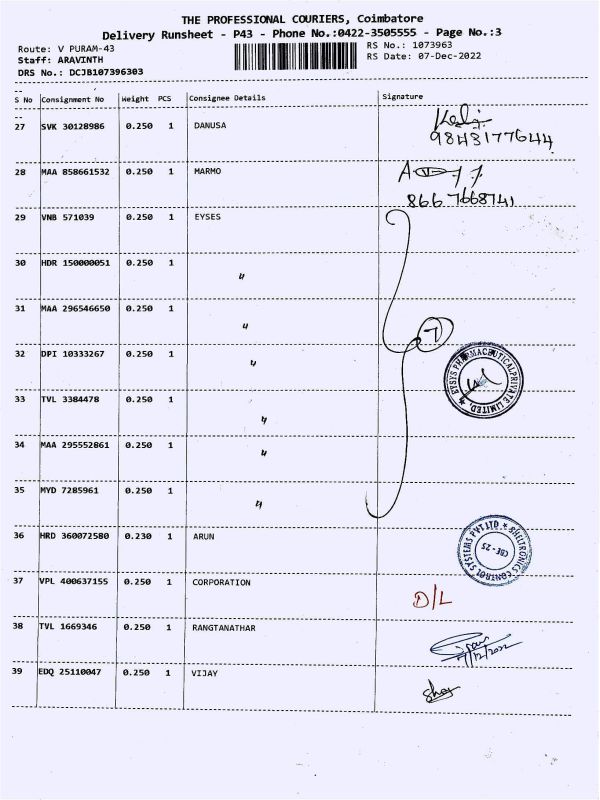 THE PROFESSIONAL COURIERS, Coimbatore
Delivery Runsheet - P43 - Phone No.:0422-3505555 - Page No.:3
Route: V PURAM-43
RS No.: 1073963
Staff: ARAVINTH
RS Date: 07-Dec-2022
DRS No.: DCJB107396303
S No Consignment No Weight PCS Consignee Details Signature
27 SVK 30128986 0.250 1 DANUSA
9843177644
28 MAA 858661532 0.250 1 MARMO
866 7668741
29 VNB 571039 0.250 1 EYSES
30 HDR 150000051 0.250 1 "
31 MAA 296546650 0.250 1 "
7
32 DPI 10333267 0.250 1 "
EYSYS PHARMACEUTICAL PRIVATE LIMITED,
33 TVL 3384478 0.250 1 "
34 MAA 295552861 0.250 1 "
35 MYD 7285961 0.250 1 "
36 HRD 360072580 0.230 1 ARUN
SHELTRONICS CONTROL SYSTEMS PVT LTD *
CBE - 25
37 VPL 400637155 0.250 1 CORPORATION
D/L
38 TVL 1669346 0.250 1 RANGTANATHAR
7/12/2022
39 EDQ 25110047 0.250 1 VIJAY